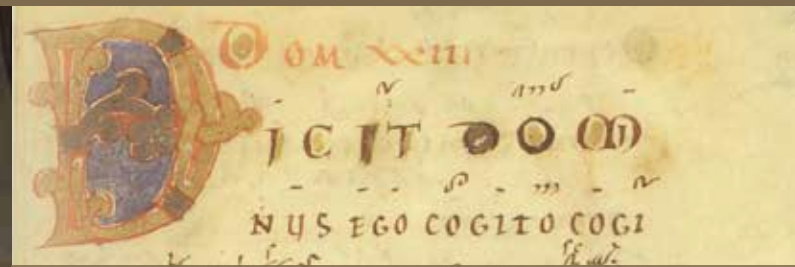 DOM XXIII
DICIT DOMI
NUS EGO COGITO COGI